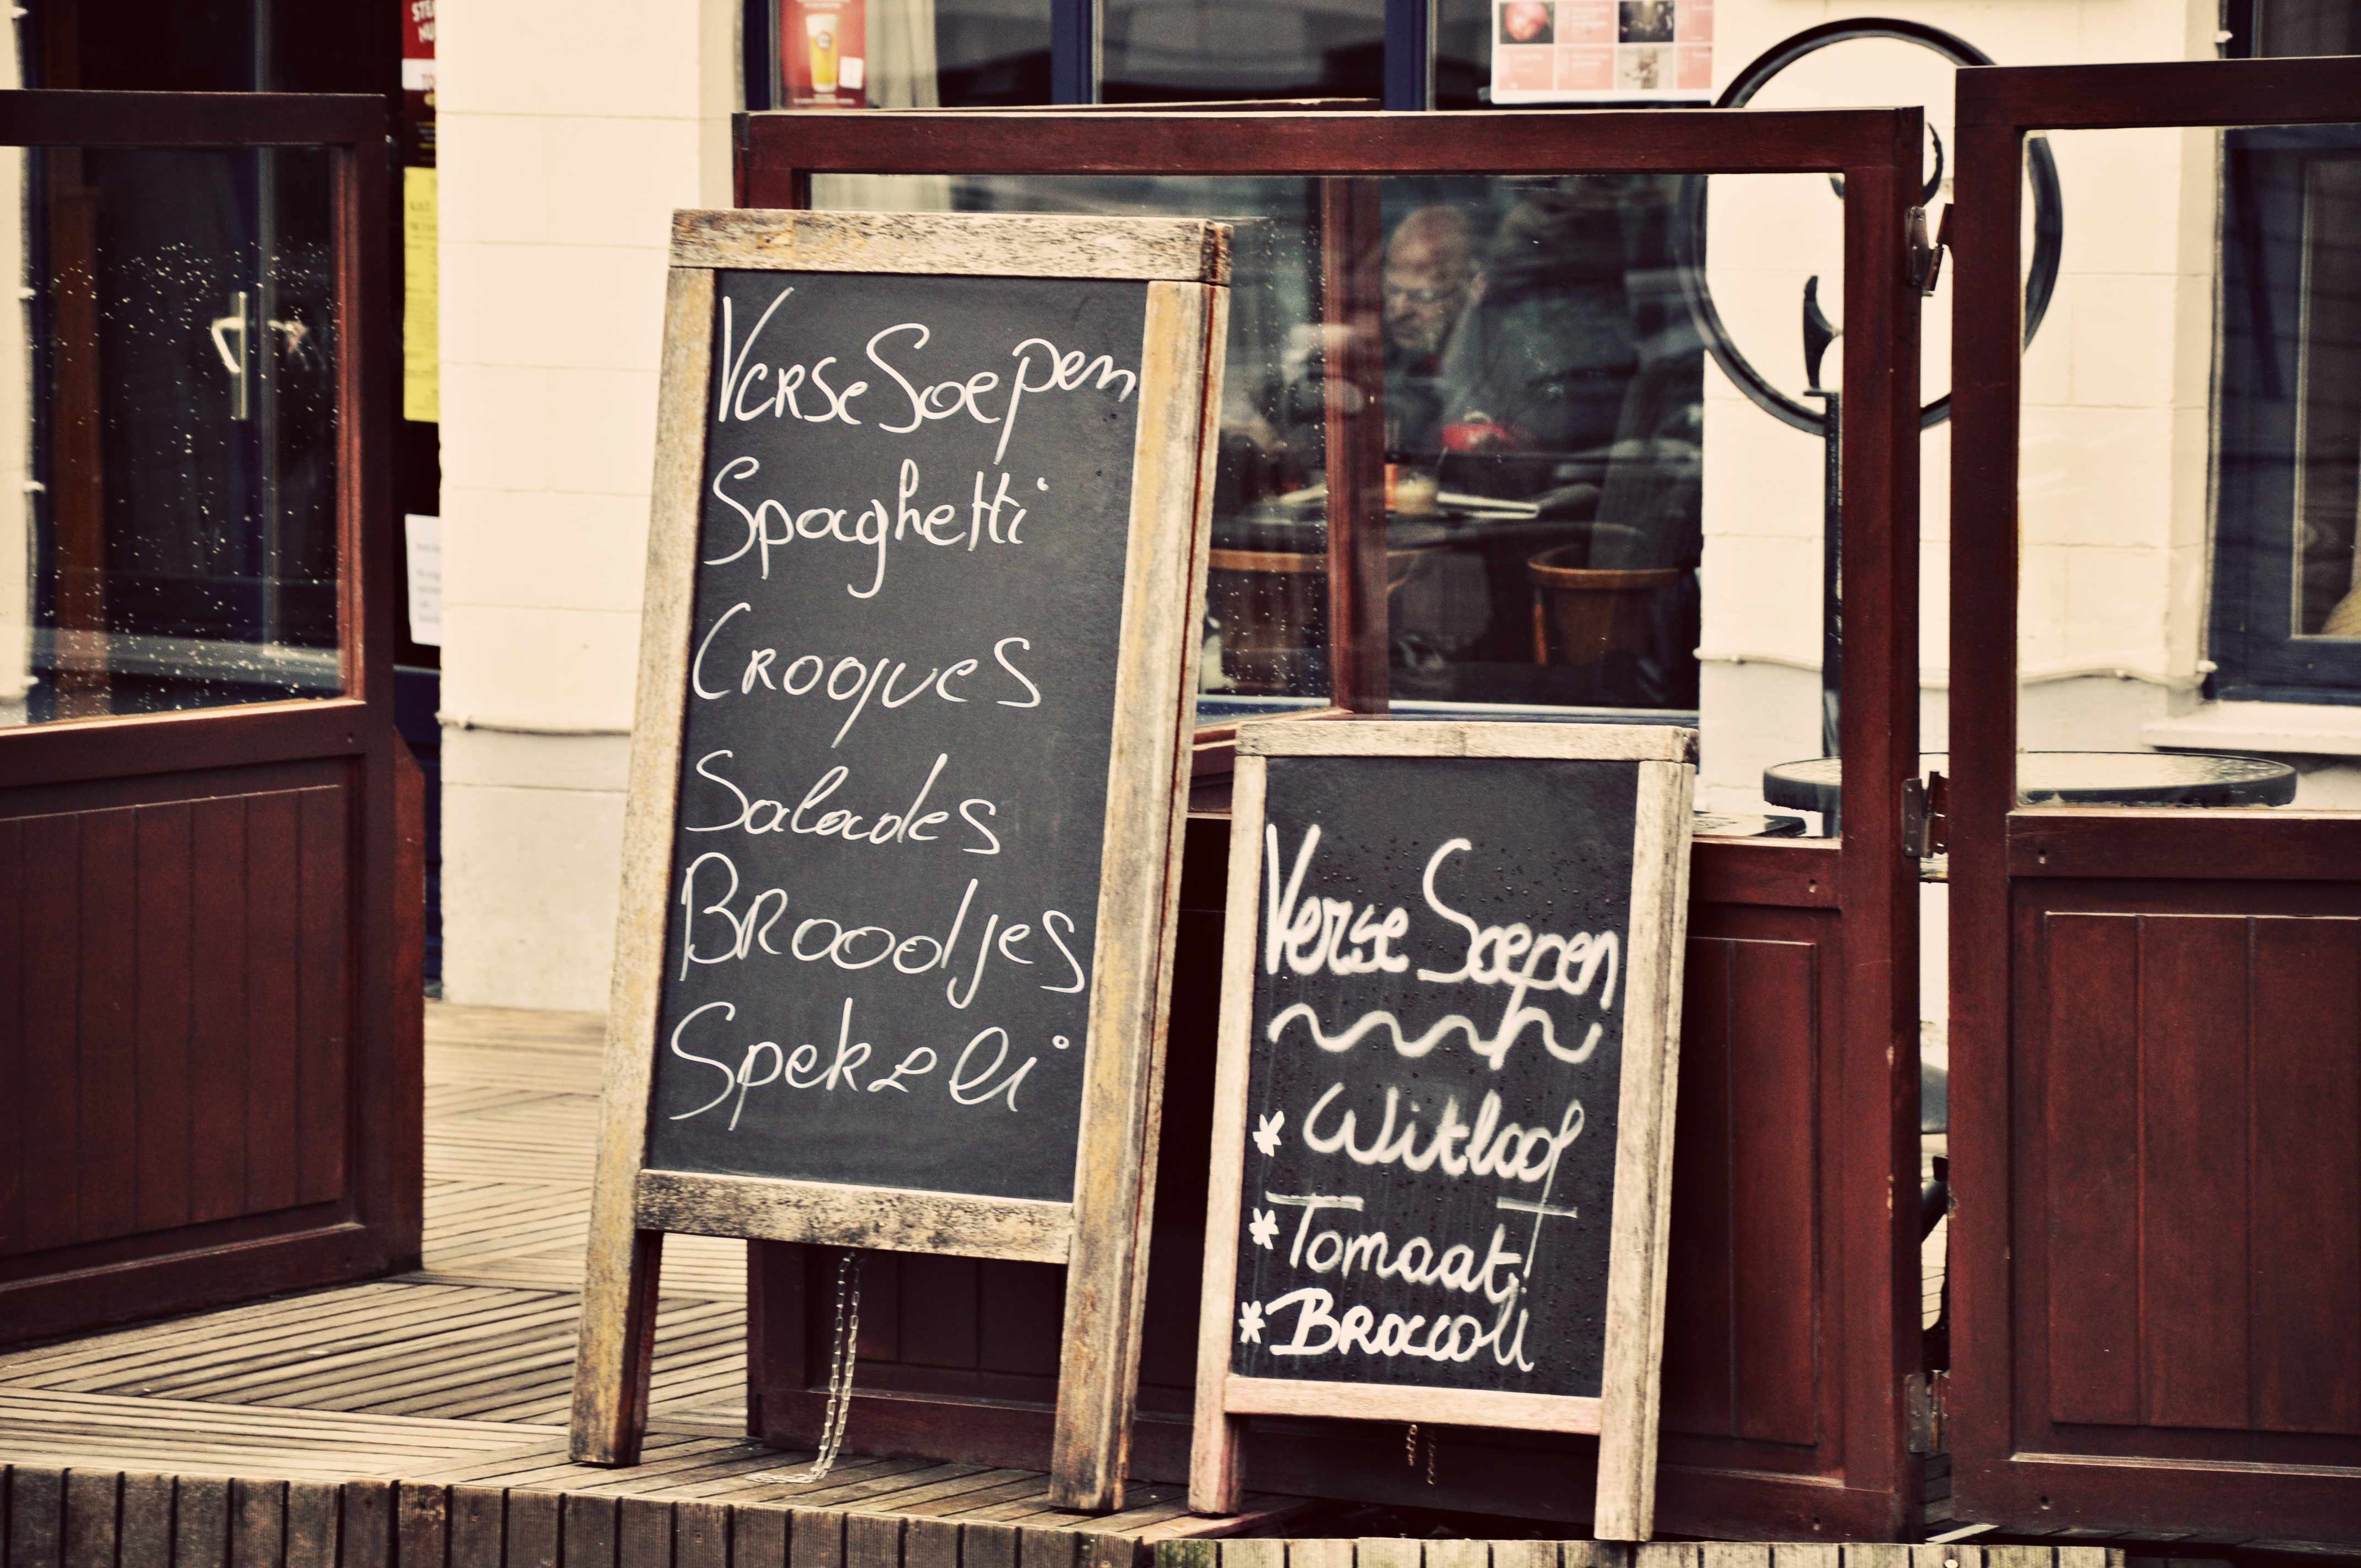 Verse Soepen
Spaghetti
Croques
Salades
Broodjes
Spekzeli
Verse Soepen
* Witloof
* Tomaat
* Broccoli